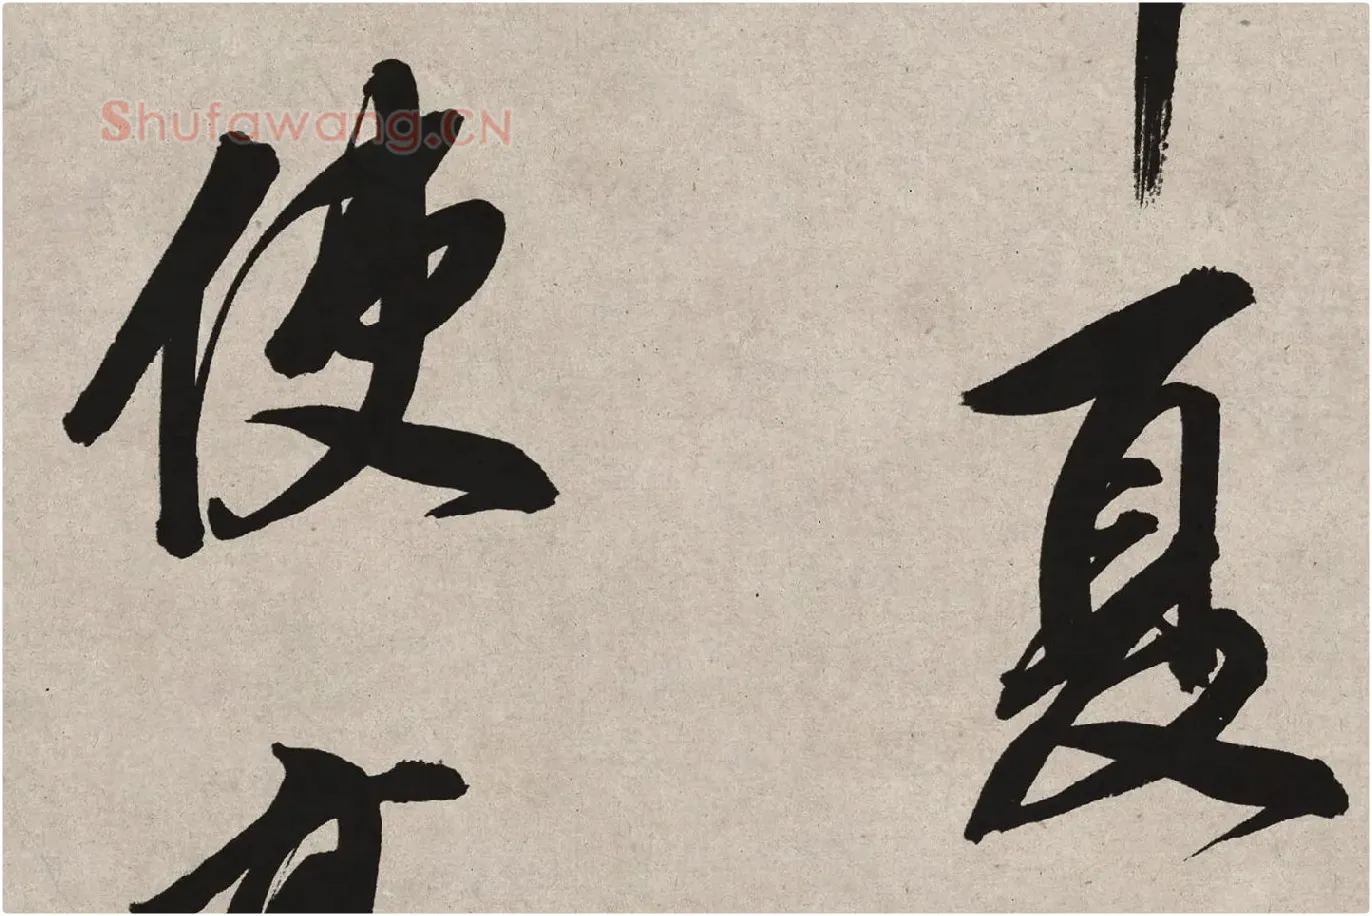 夏
使
Shufawang.CN